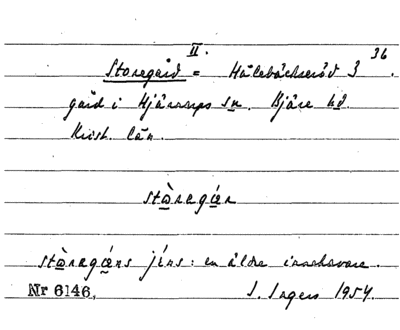 II.
Storegård = Hålebäckseröd 3 36.
gård i Hjärnarps sn. Bjäre hd
Krist. län.
stò̱regá̱rn
stò̱regá̱rns jíns: en äldre innehavare.
Nr 6146. I. Ingers 1954.